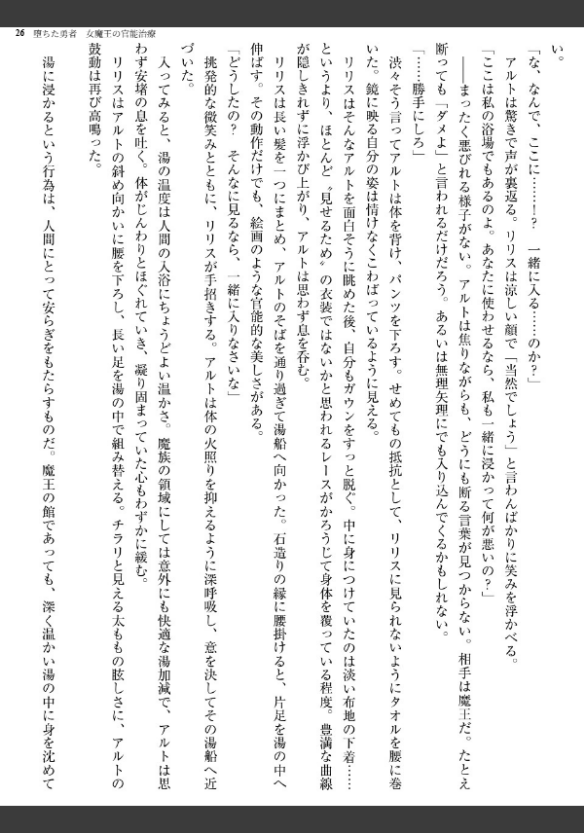 26 堕ちた勇者 女魔王の官能治療
い。
「な、なんで、ここに……!? 一緒に入る……のか?」
アルトは驚きで声が裏返る。リリスは涼しい顔で「当然でしょう」と言わんばかりに笑みを浮かべる。
「ここは私の浴場でもあるのよ。あなたに使わせるなら、私も一緒に浸かって何が悪いの?」
――まったく悪びれる様子がない。アルトは焦りながらも、どうにも断る言葉が見つからない。相手は魔王だ。たとえ
断っても「ダメよ」と言われるだけだろう。あるいは無理矢理にでも入り込んでくるかもしれない。
「……勝手にしろ」
渋々そう言ってアルトは体を背け、パンツを下ろす。せめてもの抵抗として、リリスに見られないようにタオルを腰に巻
いた。鏡に映る自分の姿は情けなくこわばっているように見える。
リリスはそんなアルトを面白そうに眺めた後、自分もガウンをすっと脱ぐ。中に身につけていたのは淡い布地の下着……
というより、ほとんど〝見せるため〟の衣装ではないかと思われるレースがかろうじて身体を覆っている程度。豊満な曲線
が隠しきれずに浮かび上がり、アルトは思わず息を呑む。
リリスは長い髪を一つにまとめ、アルトのそばを通り過ぎて湯船へ向かった。石造りの縁に腰掛けると、片足を湯の中へ
伸ばす。その動作だけでも、絵画のような官能的な美しさがある。
「どうしたの? そんなに見るなら、一緒に入りなさいな」
挑発的な微笑みとともに、リリスが手招きする。アルトは体の火照りを抑えるように深呼吸し、意を決してその湯船へ近
づいた。
入ってみると、湯の温度は人間の入浴にちょうどよい温かさ。魔族の領域にしては意外にも快適な湯加減で、アルトは思
わず安堵の息を吐く。体がじんわりとほぐれていき、凝り固まっていた心もわずかに緩む。
リリスはアルトの斜め向かいに腰を下ろし、長い足を湯の中で組み替える。チラリと見える太ももの眩しさに、アルトの
鼓動は再び高鳴った。
湯に浸かるという行為は、人間にとって安らぎをもたらすものだ。魔王の館であっても、深く温かい湯の中に身を沈めて